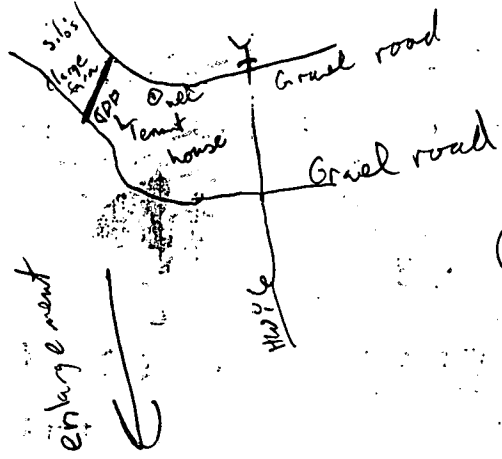 silos
large farm
well
Tenant
house
Gravel road
Gravel road
Hwy 6
enlargement